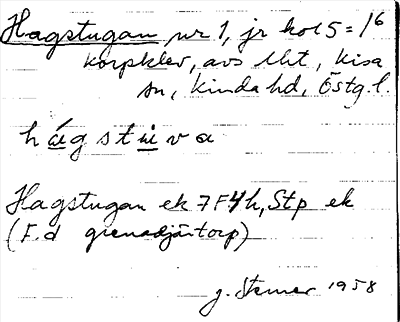 Hagstugan nr 1, jr kol 5 = 16
korpklev, avs Mt, Kisa
sn, Kinda hd, Östg.l.
hágstùva
Hagstugan ek 7F4h, Stp ek
(F.d grenadjärtorp)
g. Stemer 1958